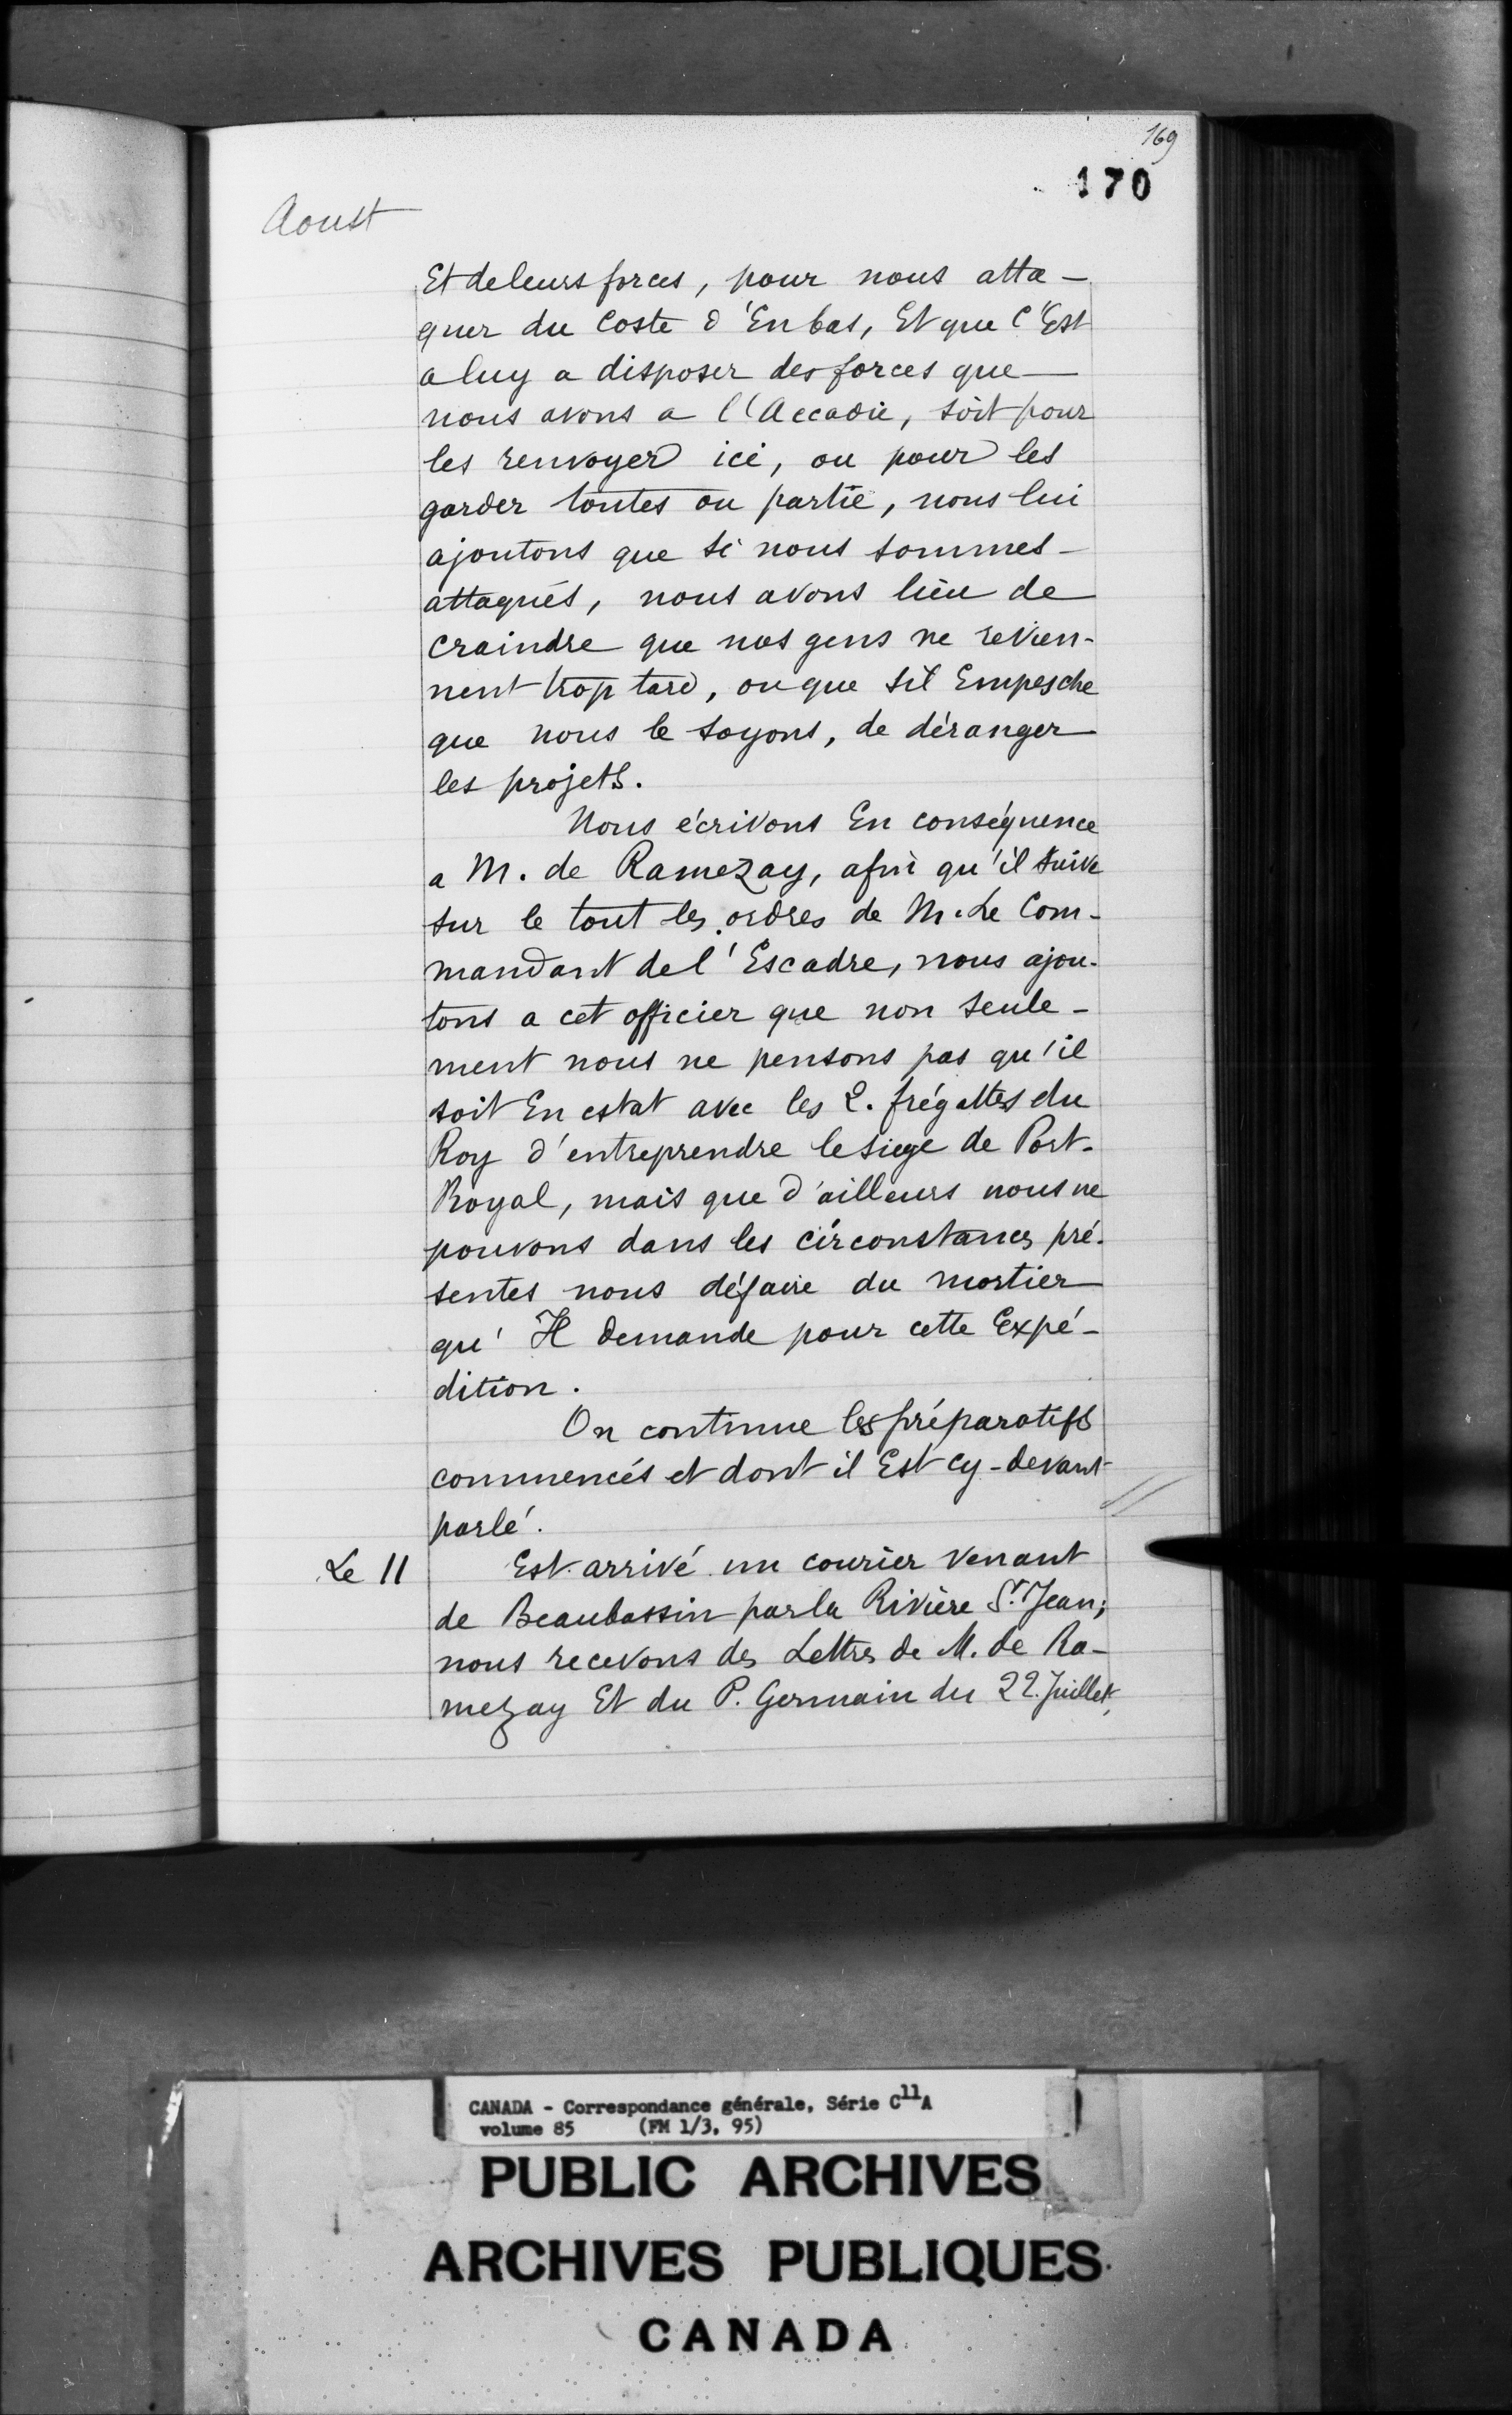 169
170
Aoust
Et de leurs forces, pour nous atta-
quer du Coste d'En bas, Et que C'Est
a luy a disposer des forces que
nous avons a l'Accadie, soit pour
les renvoyer ici, ou pour les
garder toutes ou partie, nous lui
ajoutons que si nous sommes
attaqués, nous avons lieu de
craindre que nos gens ne revien-
nent trop tard, ou que sil Empesche
que nous le soyons, de déranger
les projets.
Nous écrivons En conséquence
a M. de Ramezay, afin qu'il suive
sur le tout les ordres de M. Le Com-
mandant de l'Escadre, nous ajou-
tons a cet officier que non seule-
ment nous ne pensons pas qu'il
soit En estat avec les 2. frégattes du
Roy d'entreprendre le siege de Port-
Royal, mais que d'ailleurs nous ne
pouvons dans les circonstances pré-
sentes nous défaire du mortier
qu' Il demande pour cette Expé-
dition.
On continue les préparatifs
commencés et dont il Est cy-devant
parlé.
Le 11 Est arrivé un courier venant
de Beaubassin par la Rivière St. Jean;
nous recevons des Lettres de M. de Ra-
mezay Et du P. Germain du 22. Juillet,
CANADA - Correspondance générale, Série C11A
volume 85 (FM 1/3, 95)
PUBLIC ARCHIVES
ARCHIVES PUBLIQUES
CANADA